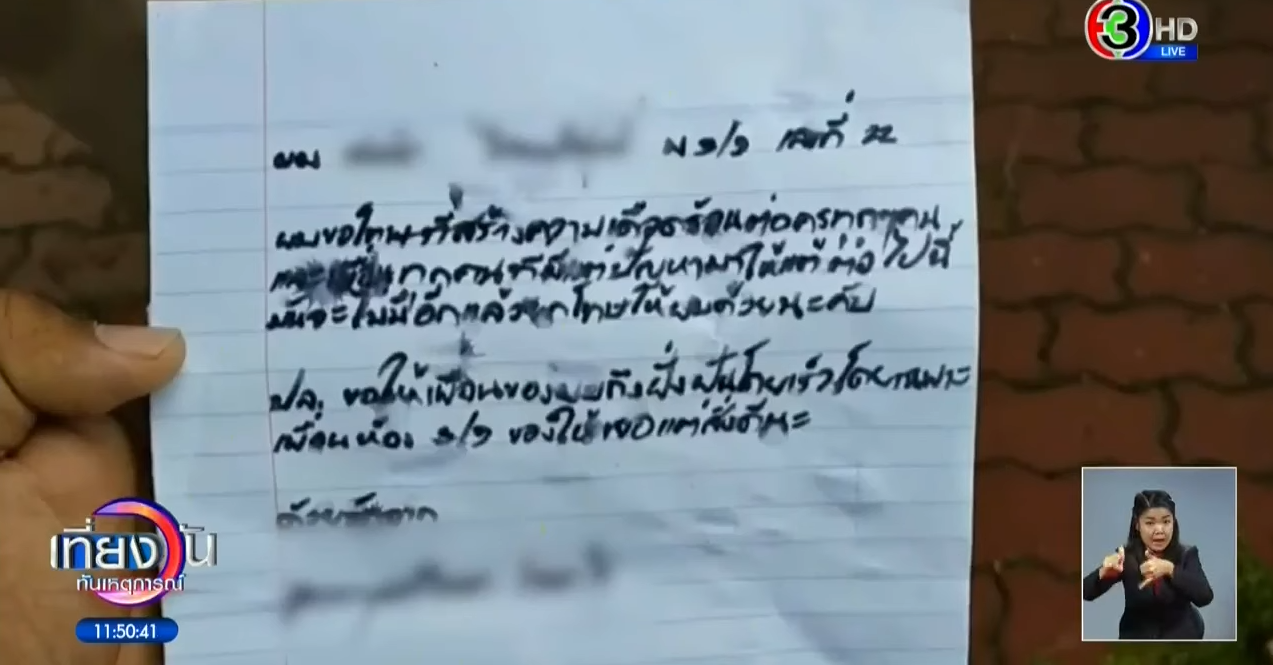 3 HD
LIVE
ผม ม ๑/๑ เลขที่ ๒๒
ผมขอโทษที่สร้างความเดือดร้อนต่อครูทุกๆคน
และ ทุกคนที่มีแต่ปัญหามาให้แต่ ต่อไปนี้
มันจะไม่มีอีกแล้วยกโทษให้ผมด้วยนะคับ
ปล. ขอให้เพื่อนของผมถึงฝั่งฝันโดยเร็วโดยเฉพาะ
เพื่อนห้อง ๑/๑ ขอให้เจอแต่สิ่งดีนะ
เที่ยงวัน
ทันเหตุการณ์
11:50:41